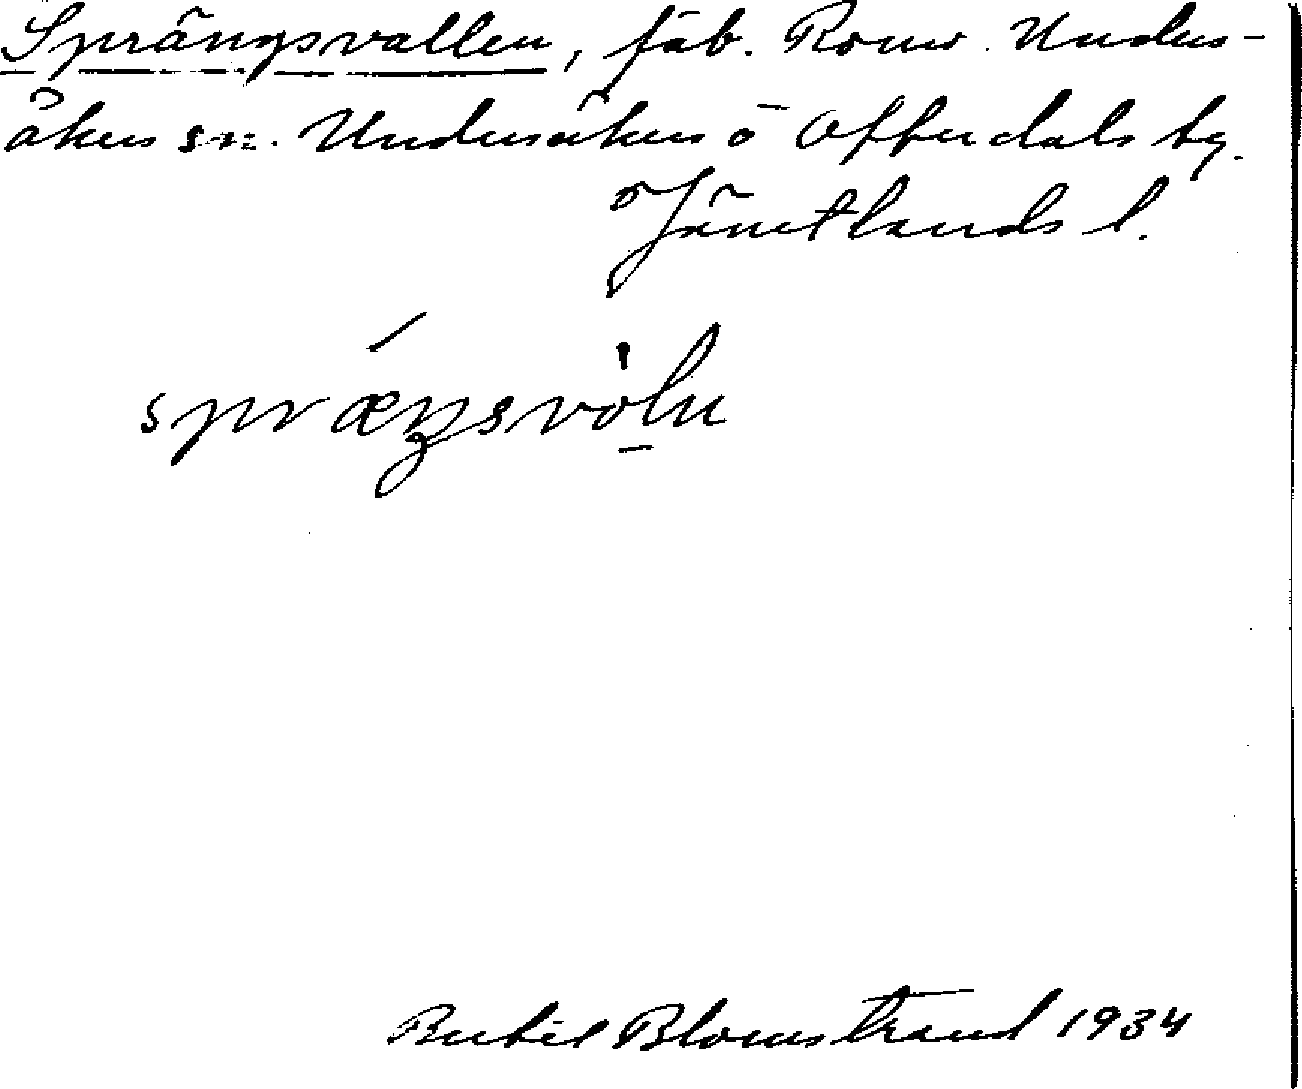 Sprängsvallen, fäb. Romo. Unders-
åkers sn. Undersåkers o Offerdals tg.
Jämtlands l.
spræŋsvòln
Bertil Blomstrand 1934